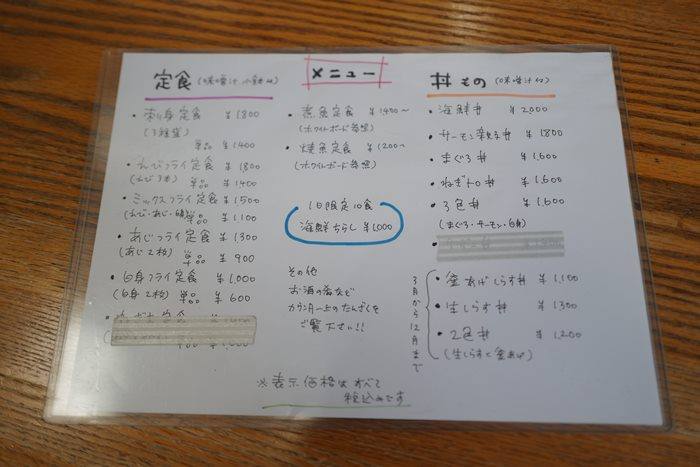 メニュー
定食 (味噌汁 小鉢付)
・刺身定食 ¥1800
(3種盛)
単品 ¥1400
・えびフライ定食 ¥1800
(えび3本) 単品 ¥1400
・ミックスフライ定食 ¥1500
(えび・あじ・白身) 単品 ¥1,100
・あじフライ定食 ¥1,300
(あじ2枚) 単品 ¥900
・白身フライ定食 ¥1,000
(白身2枚) 単品 ¥600
・煮魚定食 ¥1400〜
(ホワイトボード参照)
・焼魚定食 ¥1200〜
(ホワイトボード参照)
1日限定10食
海鮮ちらし ¥1,000
その他
お酒の肴など
カウンター上のたんざくを
ご覧下さい!!
丼もの (味噌汁付)
・海鮮丼 ¥2000
・サーモン親子丼 ¥1800
・まぐろ丼 ¥1,600
・ねぎトロ丼 ¥1,600
・3色丼 ¥1,600
(まぐろ・サーモン・白身)
3月から12月まで
・釜あげしらす丼 ¥1,100
・生しらす丼 ¥1300
・2色丼 ¥1,200
(生しらすと釜あげ)
※表示価格はすべて
税込みです